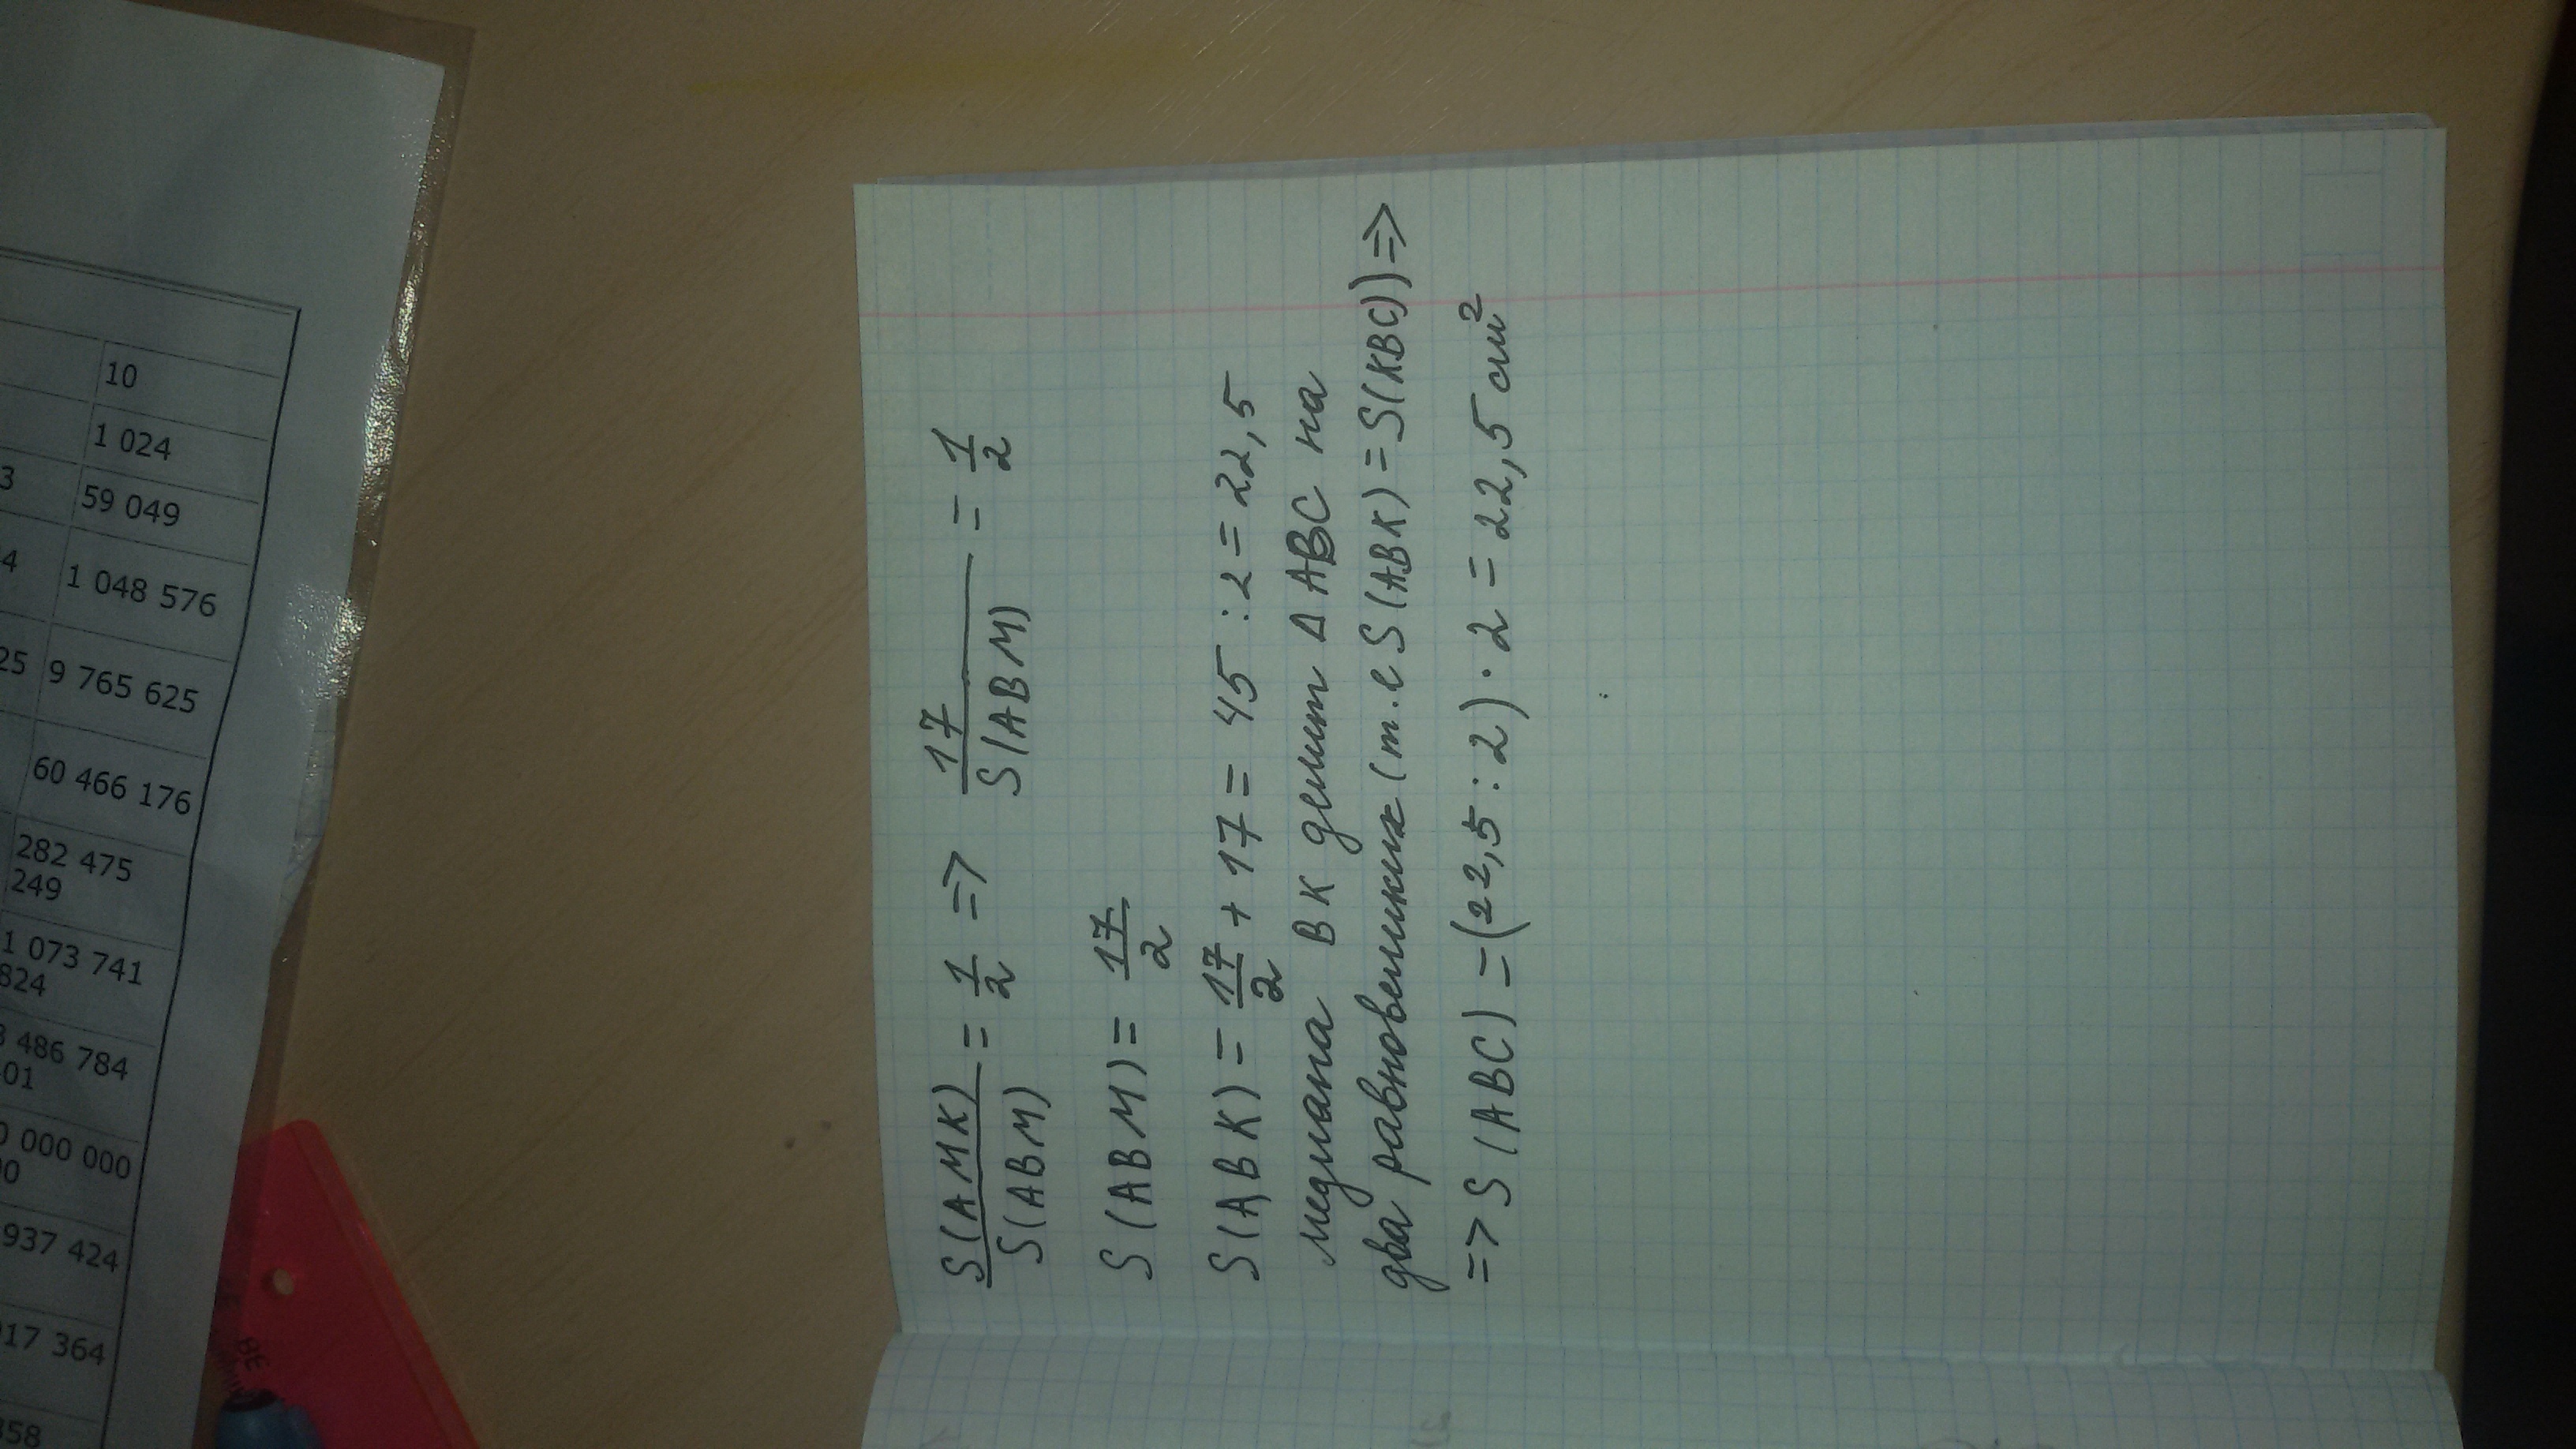 10
1 024
3 59 049
4 1 048 576
25 9 765 625
60 466 176
282 475
249
1 073 741
824
3 486 784
401
0 000 000
00
937 424
917 364
358
S(AMK)/S(ABM) = 1/2 => 17/S(ABM) = 1/2
S(ABM) = 17/2
S(ABK) = 17/2 + 17 = 45 : 2 = 22,5
медиана BK делит Δ ABC на
два равновеликих (т.е S(ABK) = S(KBC)) =>
=> S(ABC) = (22,5 : 2) · 2 = 22,5 см²